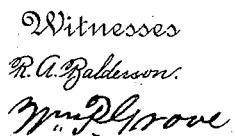 Witnesses
R. A. Balderson.
Wm P. Grove